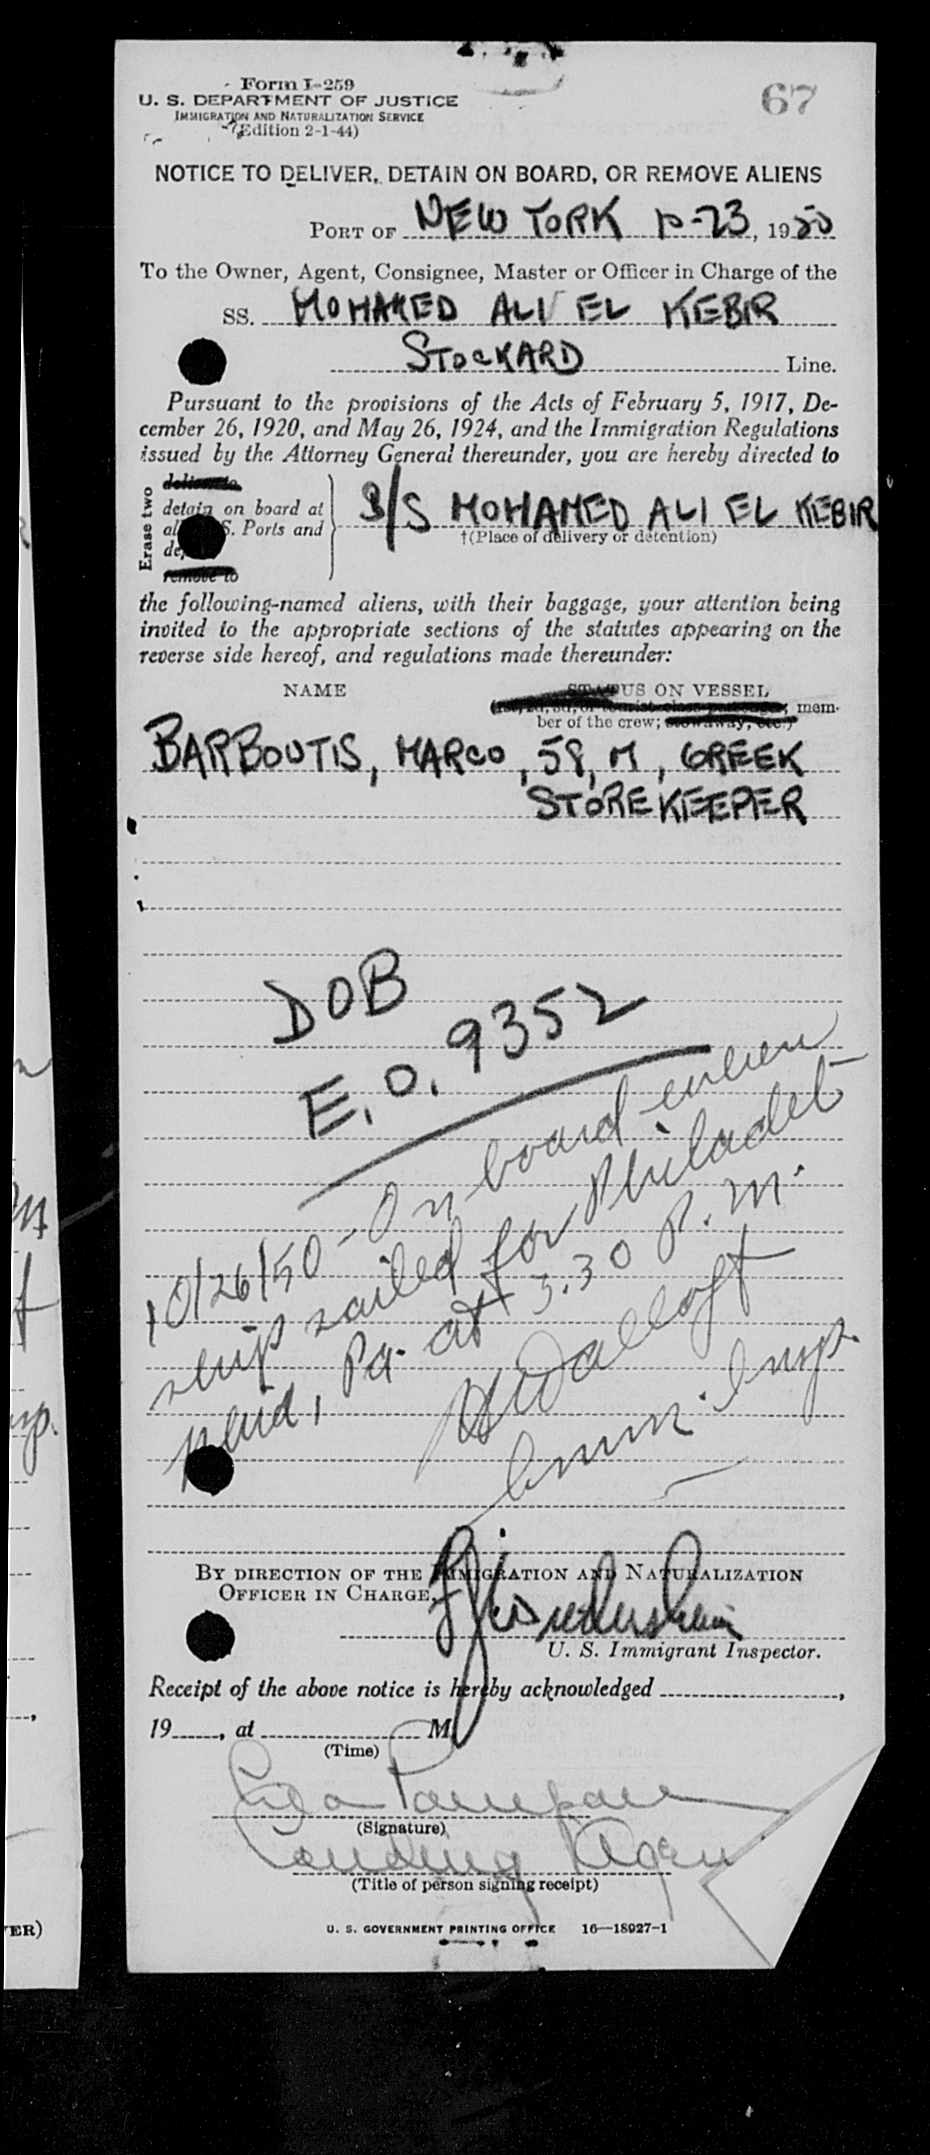 Form I-259
67
U. S. DEPARTMENT OF JUSTICE
IMMIGRATION AND NATURALIZATION SERVICE
(Edition 2-1-44)
NOTICE TO DELIVER, DETAIN ON BOARD, OR REMOVE ALIENS
PORT OF NEW YORK 10-23, 1950
To the Owner, Agent, Consignee, Master or Officer in Charge of the
SS. MOHAMED ALI EL KEBIR
STOCKARD Line.
Pursuant to the provisions of the Acts of February 5, 1917, De-
cember 26, 1920, and May 26, 1924, and the Immigration Regulations
issued by the Attorney General thereunder, you are hereby directed to
Erase two
deliver to
detain on board at
S. Ports and
remove to
S/S MOHAMED ALI EL KEBIR
†(Place of delivery or detention)
the following-named aliens, with their baggage, your attention being
invited to the appropriate sections of the statutes appearing on the
reverse side hereof, and regulations made thereunder:
NAME STATUS ON VESSEL
(1st, 2d, 3d, or tourist class passenger; mem-
ber of the crew; stowaway, etc.)
BARBOUTIS, MARCO, 58, M, GREEK
STOREKEEPER
DOB
E.O. 9352
10/26/50 - On board when
ship sailed for Philadel-
phia, Pa. at 3.30 P.M.
Imm. Insp.
BY DIRECTION OF THE IMMIGRATION AND NATURALIZATION
OFFICER IN CHARGE.
U. S. Immigrant Inspector.
Receipt of the above notice is hereby acknowledged ,
19 , at M
(Time)
(Signature)
Landing Agen
(Title of person signing receipt)
U. S. GOVERNMENT PRINTING OFFICE 16—18927-1
ER)